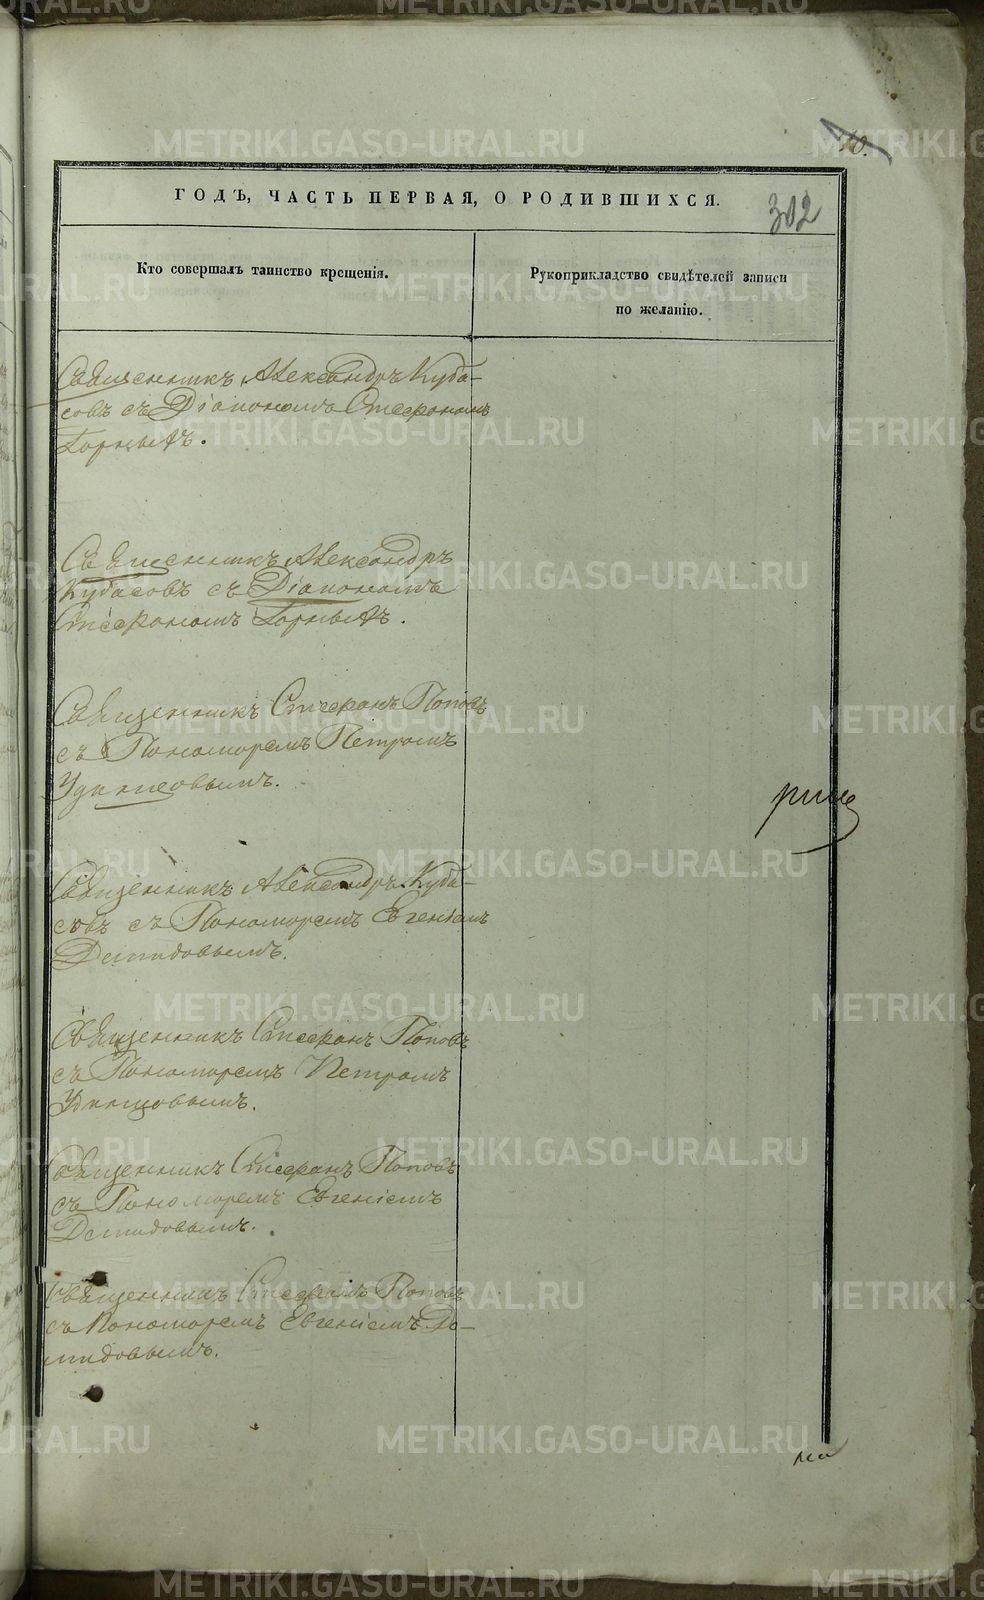 10.
ГОДЪ, ЧАСТЬ ПЕРВАЯ, О РОДИВШИХСЯ.
302
Кто совершалъ таинство крещенія.
Рукоприкладство свидѣтелей записи
по желанію.
Священникъ Александръ Куба-
совъ съ Діакономъ Стефаномъ
Горныхъ.
Священникъ Александръ
Кубасовъ съ Діакономъ
Стефаномъ Горныхъ.
Священникъ Стефанъ Поповъ
съ Пономаремъ Петромъ
Удинцовымъ.
Священникъ Александръ Куба-
совъ съ Пономаремъ Евгеніемъ
Демидовымъ.
Священникъ Стефанъ Поповъ
съ Пономаремъ Петромъ
Удинцовымъ.
Священникъ Стефанъ Поповъ
съ Пономаремъ Евгеніемъ
Демидовымъ.
Священникъ Стефанъ Поповъ
съ Пономаремъ Евгеніемъ Де-
мидовымъ.
METRIKI.GASO-URAL.RU